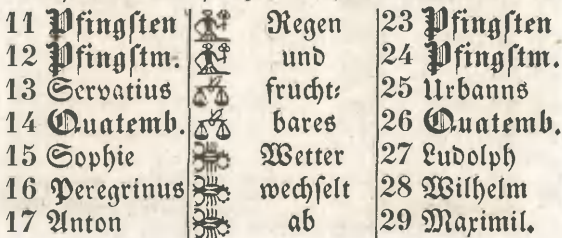 11 Pfingſten Regen 23 Pfingſten
12 Pfingſtm. und 24 Pfingſtm.
13 Servatius frucht⸗ 25 Urbanns
14 Quatemb. bares 26 Quatemb.
15 Sophie Wetter 27 Ludolph
16 Peregrinus wechſelt 28 Wilhelm
17 Anton ab 29 Maximil.